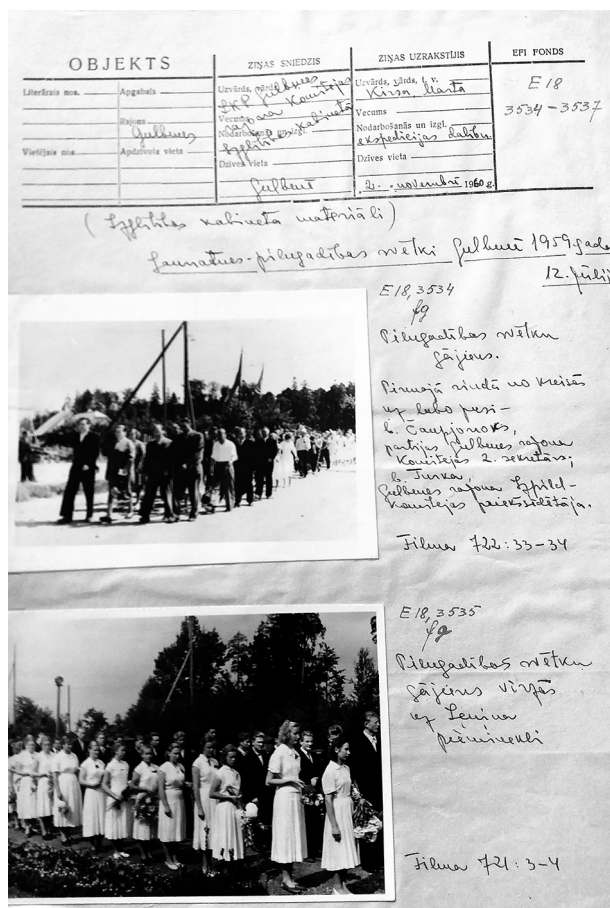 OBJEKTS
Literārais nos.
Apgabals
Rajons
Gulbenes
Vietējais nos.
Apdzīvota vieta
ZIŅAS SNIEDZIS
Uzvārds, vārds
LKP Gulbenes
rajona Komitejas
Vecums
Nodarbošanās un izgl.
Izglītības kabinets
Dzīves vieta
Gulbenē
ZIŅAS UZRAKSTĪJIS
Uzvārds, vārds, t. v.
Kirsa Marta
Vecums
Nodarbošanās un izgl.
ekspedīcijas dalībn.
Dzīves vieta
2. novembrī 1960 g.
EFI FONDS
E 18
3534-3537
(Izglītības kabineta materiāli)
Jaunatnes-pilngadības svētki Gulbenē 1959. gada
12. jūlij
E 18, 3534
fg
Pilngadības svētku
gājiens.
Pirmajā rindā no kreisās
uz labo pusi-
b.
partijas Gulbenes rajona
Komitejas 2. sekretārs;
b. Turka,
Gulbenes rajona Izpild-
komitejas priekšsēdētāja.
Filma 722:33-34
E 18, 3535
fg
Pilngadības svētku
gājiens virzās
uz Ļeņina
pieminekli
Filma 721:3-4